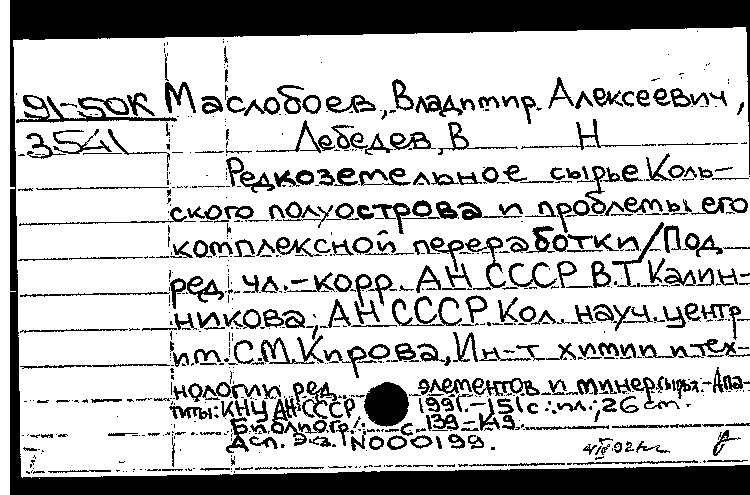 91-50К Маслобоев, Владимир Алексеевич,
3541 Лебедев, В Н
Редкоземельное сырье Коль-
ского полуострова и проблемы его
комплексной переработки/Под
ред. чл.-корр. АН СССР В.Т. Калин-
никова; АН СССР. Кол. науч. центр
им. С.М. Кирова, Ин-т химии и тех-
нологии ред. элементов и минер. сырья.-Апа-
титы: КНЦ АН СССР 1991.-151 с.: ил.; 26 см.
Библиогр.: с. 139-149.
Деп. экз. N000199.